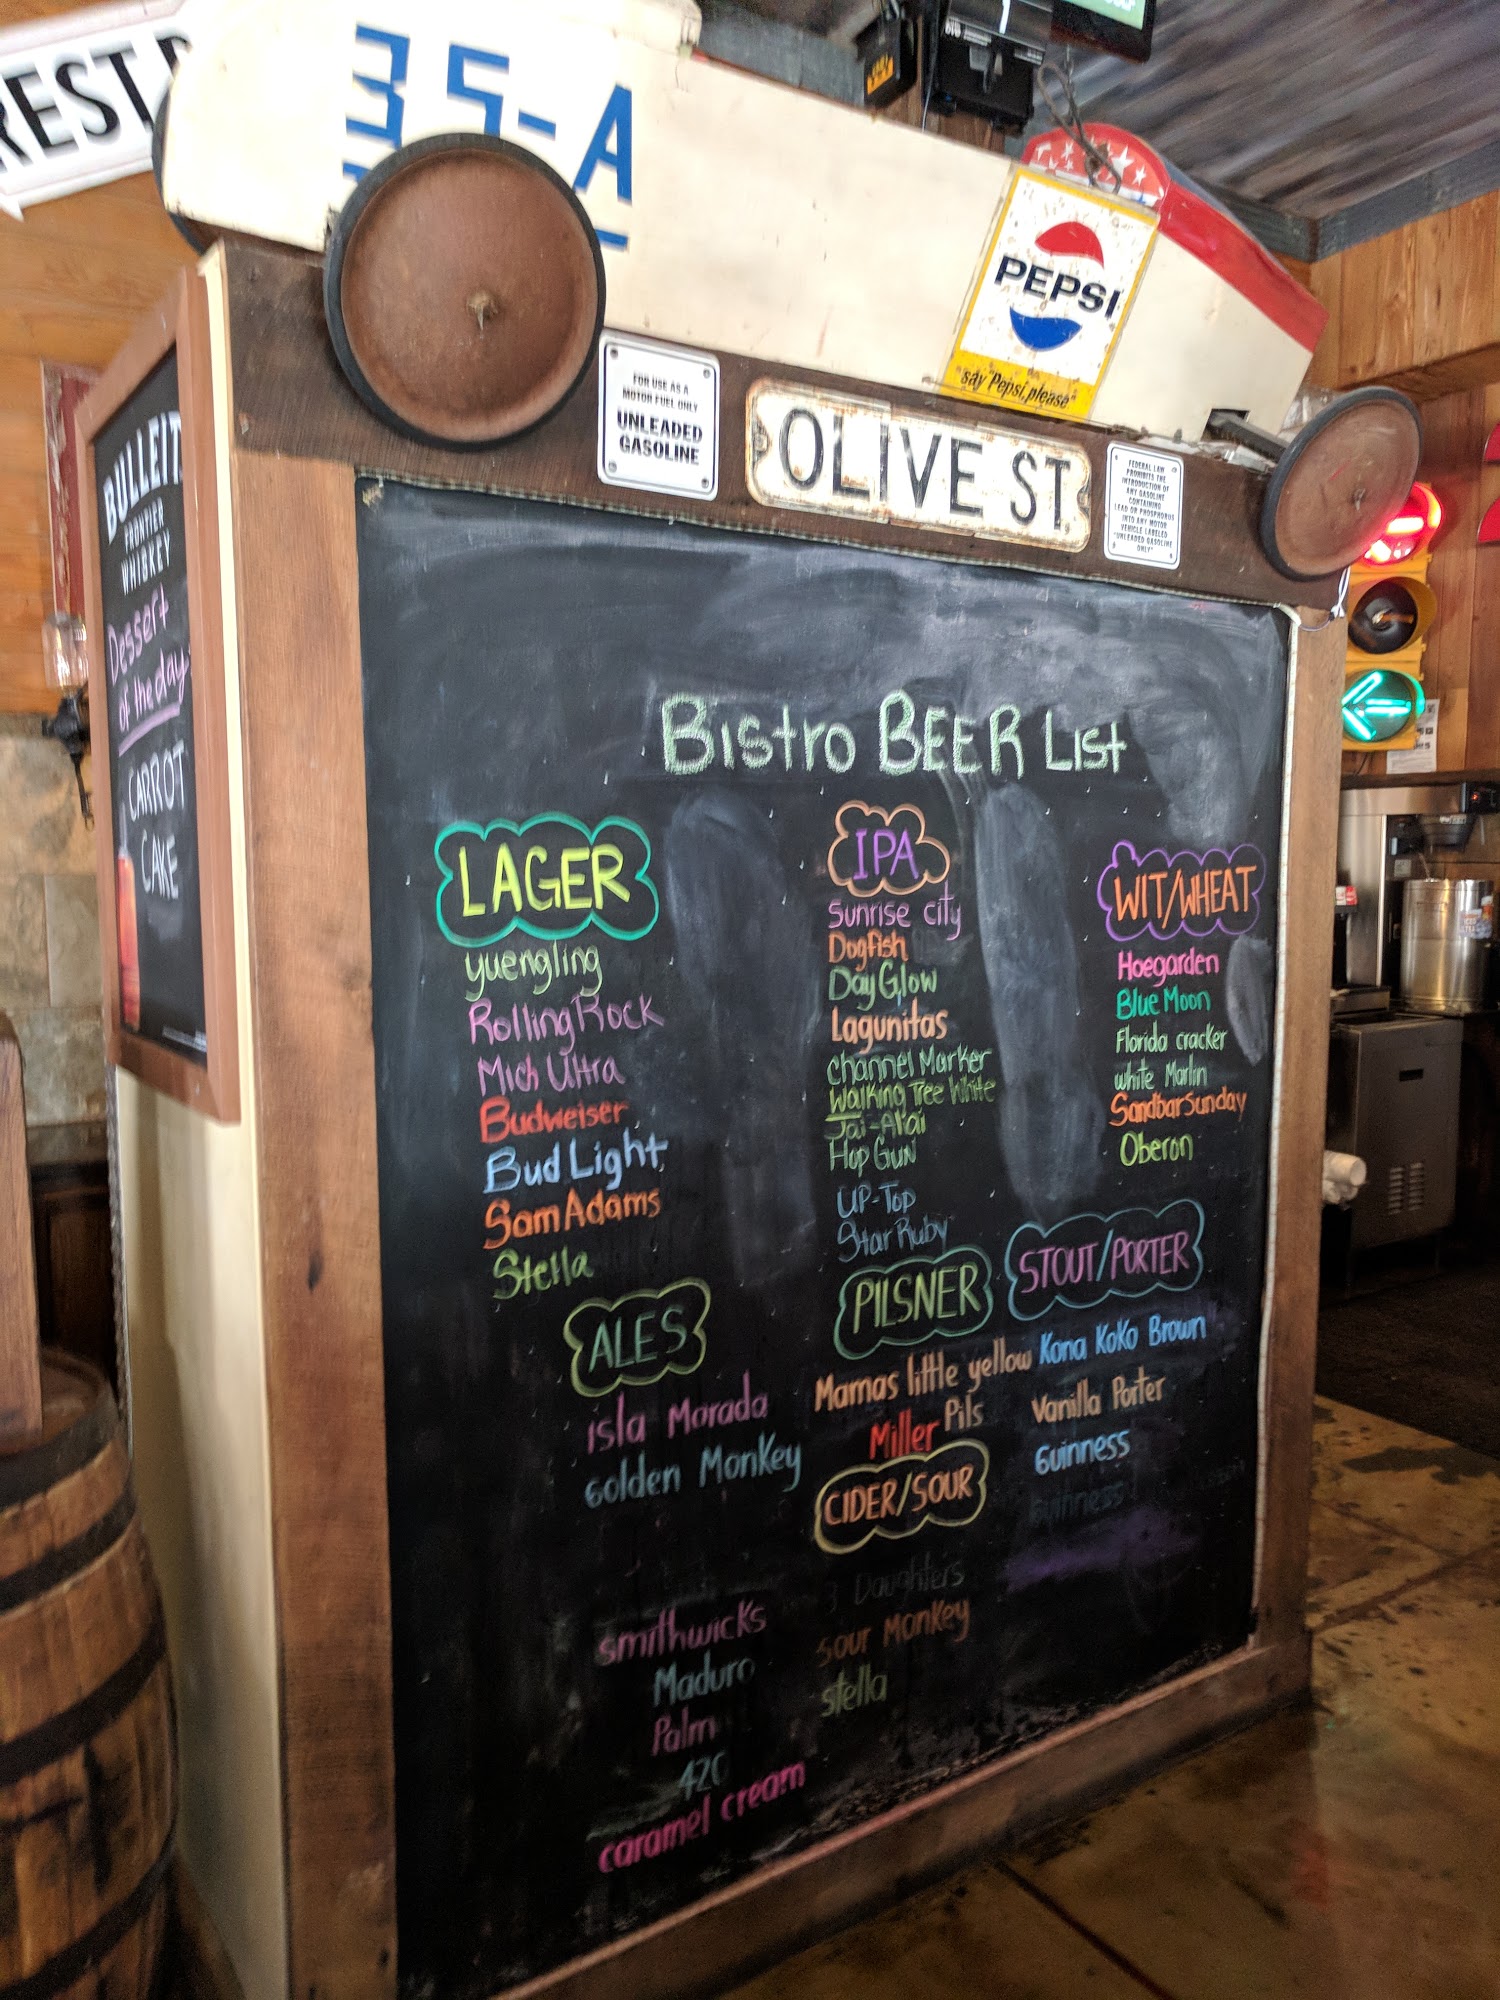 REST
35-A
PEPSI
say "Pepsi, please"
FOR USE AS A
MOTOR FUEL ONLY
UNLEADED
GASOLINE
OLIVE ST.
FEDERAL LAW
PROHIBITS THE
INTRODUCTION OF
ANY GASOLINE
CONTAINING
LEAD OR PHOSPHORUS
INTO ANY MOTOR
VEHICLE LABELED
"UNLEADED GASOLINE
ONLY"
BULLEIT
FRONTIER
WHISKEY
Dessert
of the day
CARROT
CAKE
Bistro BEER List
LAGER
yuengling
Rolling Rock
Mich Ultra
Budweiser
Bud Light
Sam Adams
Stella
ALES
isla Morada
Golden Monkey
smithwicks
Maduro
Palm
420
caramel cream
IPA
Sunrise city
Dogfish
Day Glow
Lagunitas
channel Marker
Walking Tree White
Jai-Alai
Hop Gun
UP-Top
Star Ruby
PILSNER
Mamas little yellow
Pils
Miller
CIDER/SOUR
3 Daughters
Sour Monkey
stella
WIT/WHEAT
Hoegarden
Blue Moon
Florida cracker
white Marlin
Sandbar Sunday
Oberon
STOUT/PORTER
Kona KoKo Brown
Vanilla Porter
Guinness
Guinness